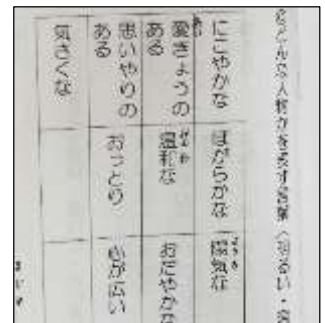 どんな人物かを表す言葉〈明るい・
にこやかな ほがらかな 陽気な
愛きょうの
ある 温和な おだやかな
思いやりの
ある おっとり 心が広い
気さくな